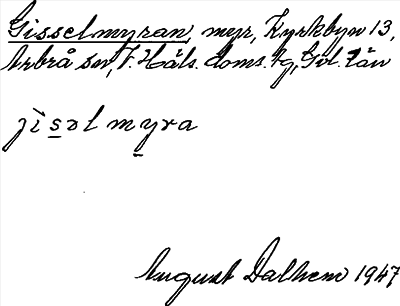 Gisselmyran, myr, Kyrkbyn 13,
Arbrå sn, V. Häls. doms. tg, Gvl. län
jìsəl myra
August Dalhem 1947